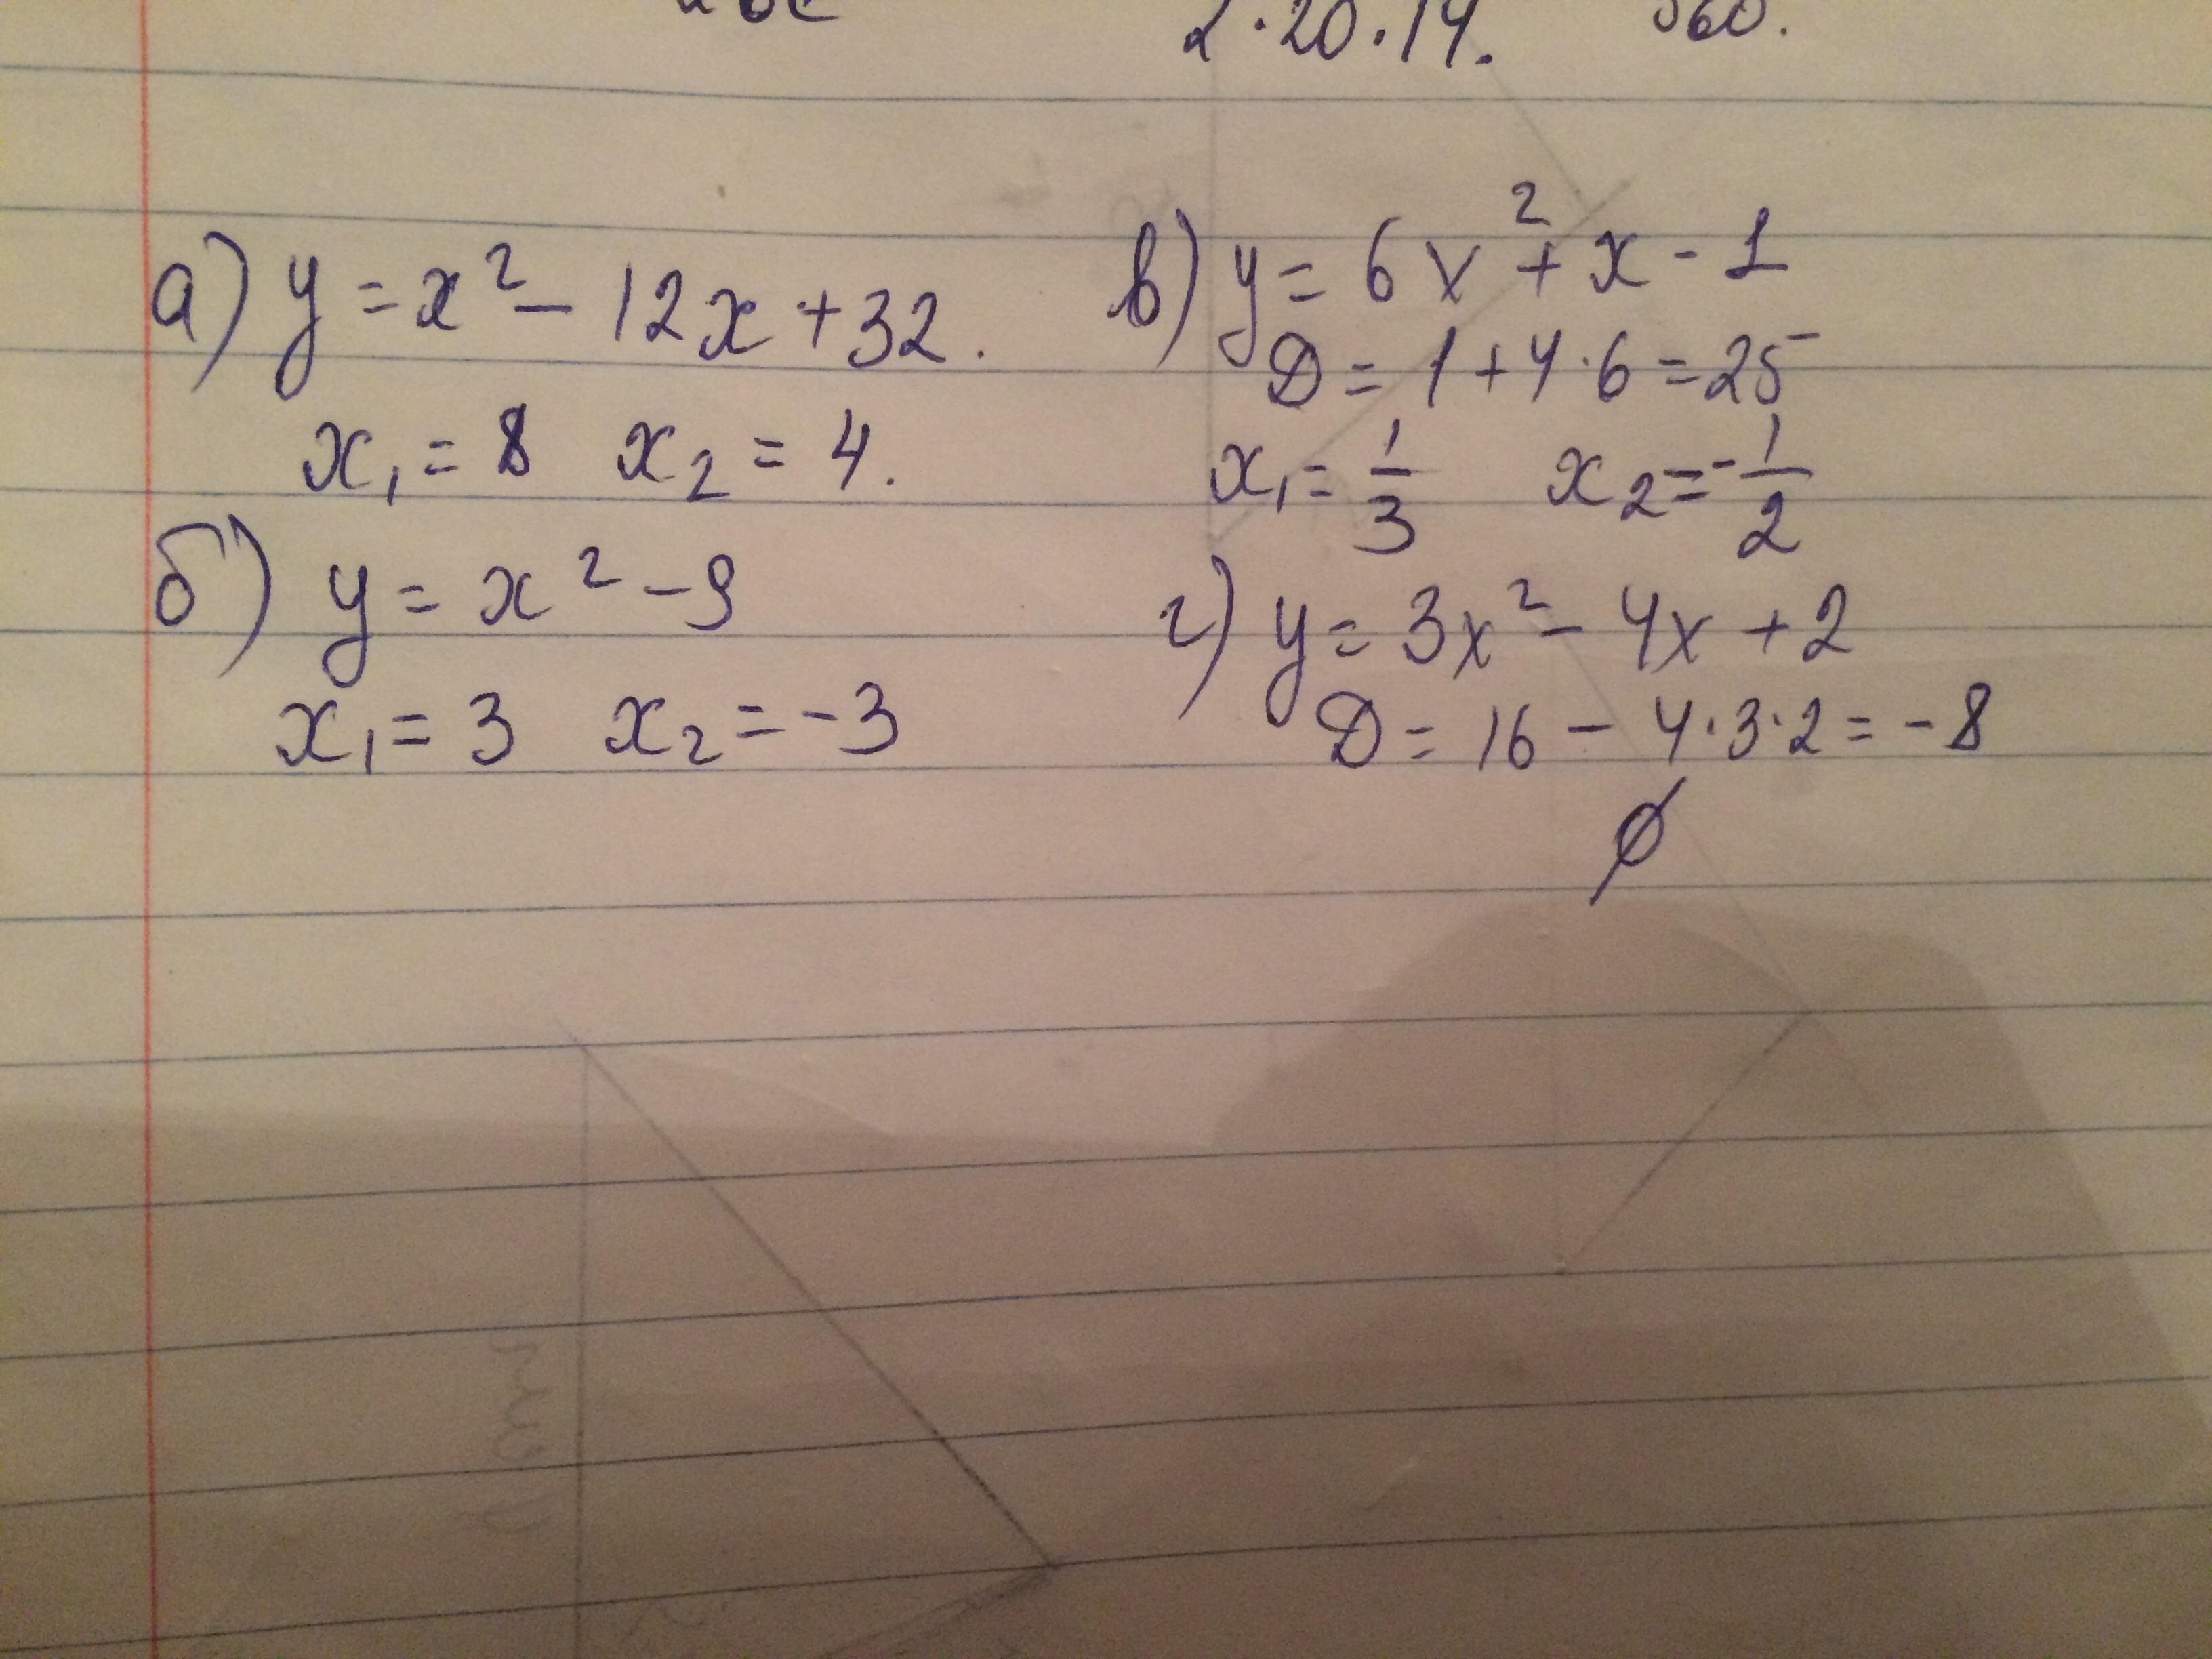 2·20·14.
а) y = x² - 12x + 32.
x₁ = 8 x₂ = 4.
б) y = x² - 9
x₁ = 3 x₂ = -3
в) y = 6x² + x - 1
D = 1 + 4·6 = 25
x₁ = 1/3 x₂ = -1/2
г) y = 3x² - 4x + 2
D = 16 - 4·3·2 = -8
∅